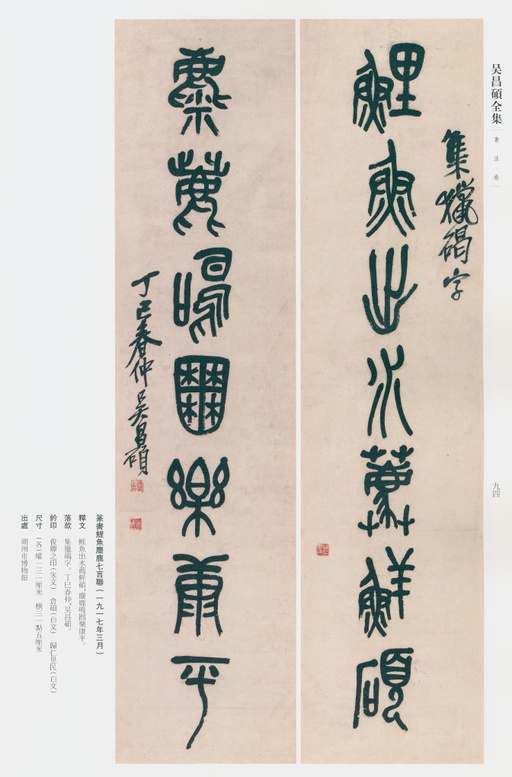 吴昌碩全集
書法卷
九四
集獵碣字
鯉魚出水蕭鮮碩
麋鹿鳴囿樂康平
丁巳春仲吴昌碩
篆書鯉魚麋鹿七言聯(一九一七年三月)
釋文 鯉魚出水蕭鮮碩,麋鹿鳴囿樂康平。
落款 集獵碣字。丁巳春仲,吴昌碩。
鈐印 俊卿之印(朱文) 倉碩(白文) 歸仁里民(白文)
尺寸 (各)縱一三一厘米 橫三一點五厘米
出處 湖州市博物館